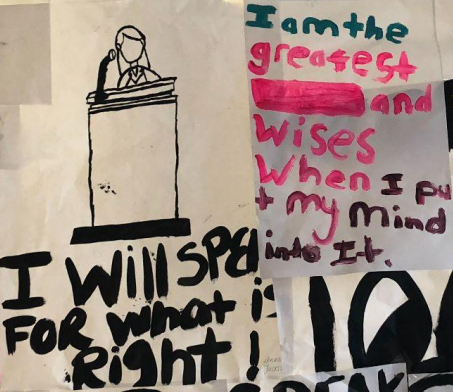 I am the
greatest
and
wises
when I pu
t my mind
into It.
I Will SPE
FOR what is
Right!